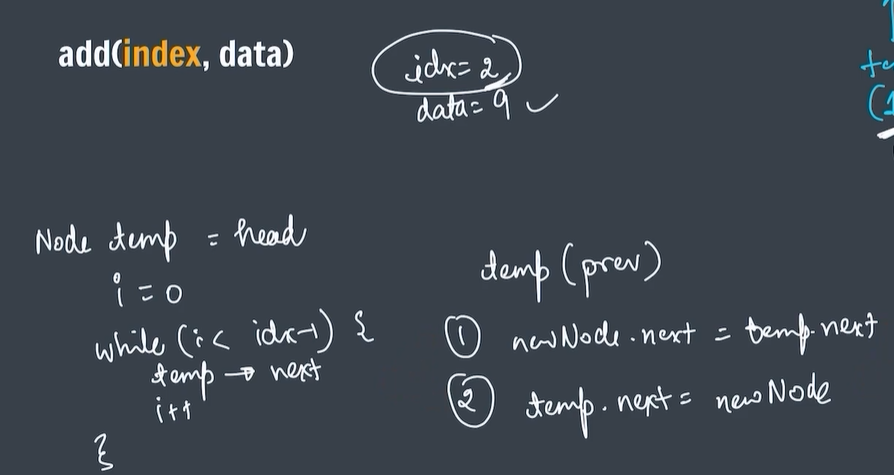 add(index, data)
idx = 2
data = 9 ✓
Node temp = head
i = 0
while (i < idx-1) {
temp → next
i++
}
temp (prev)
① newNode.next = temp.next
② temp.next = newNode